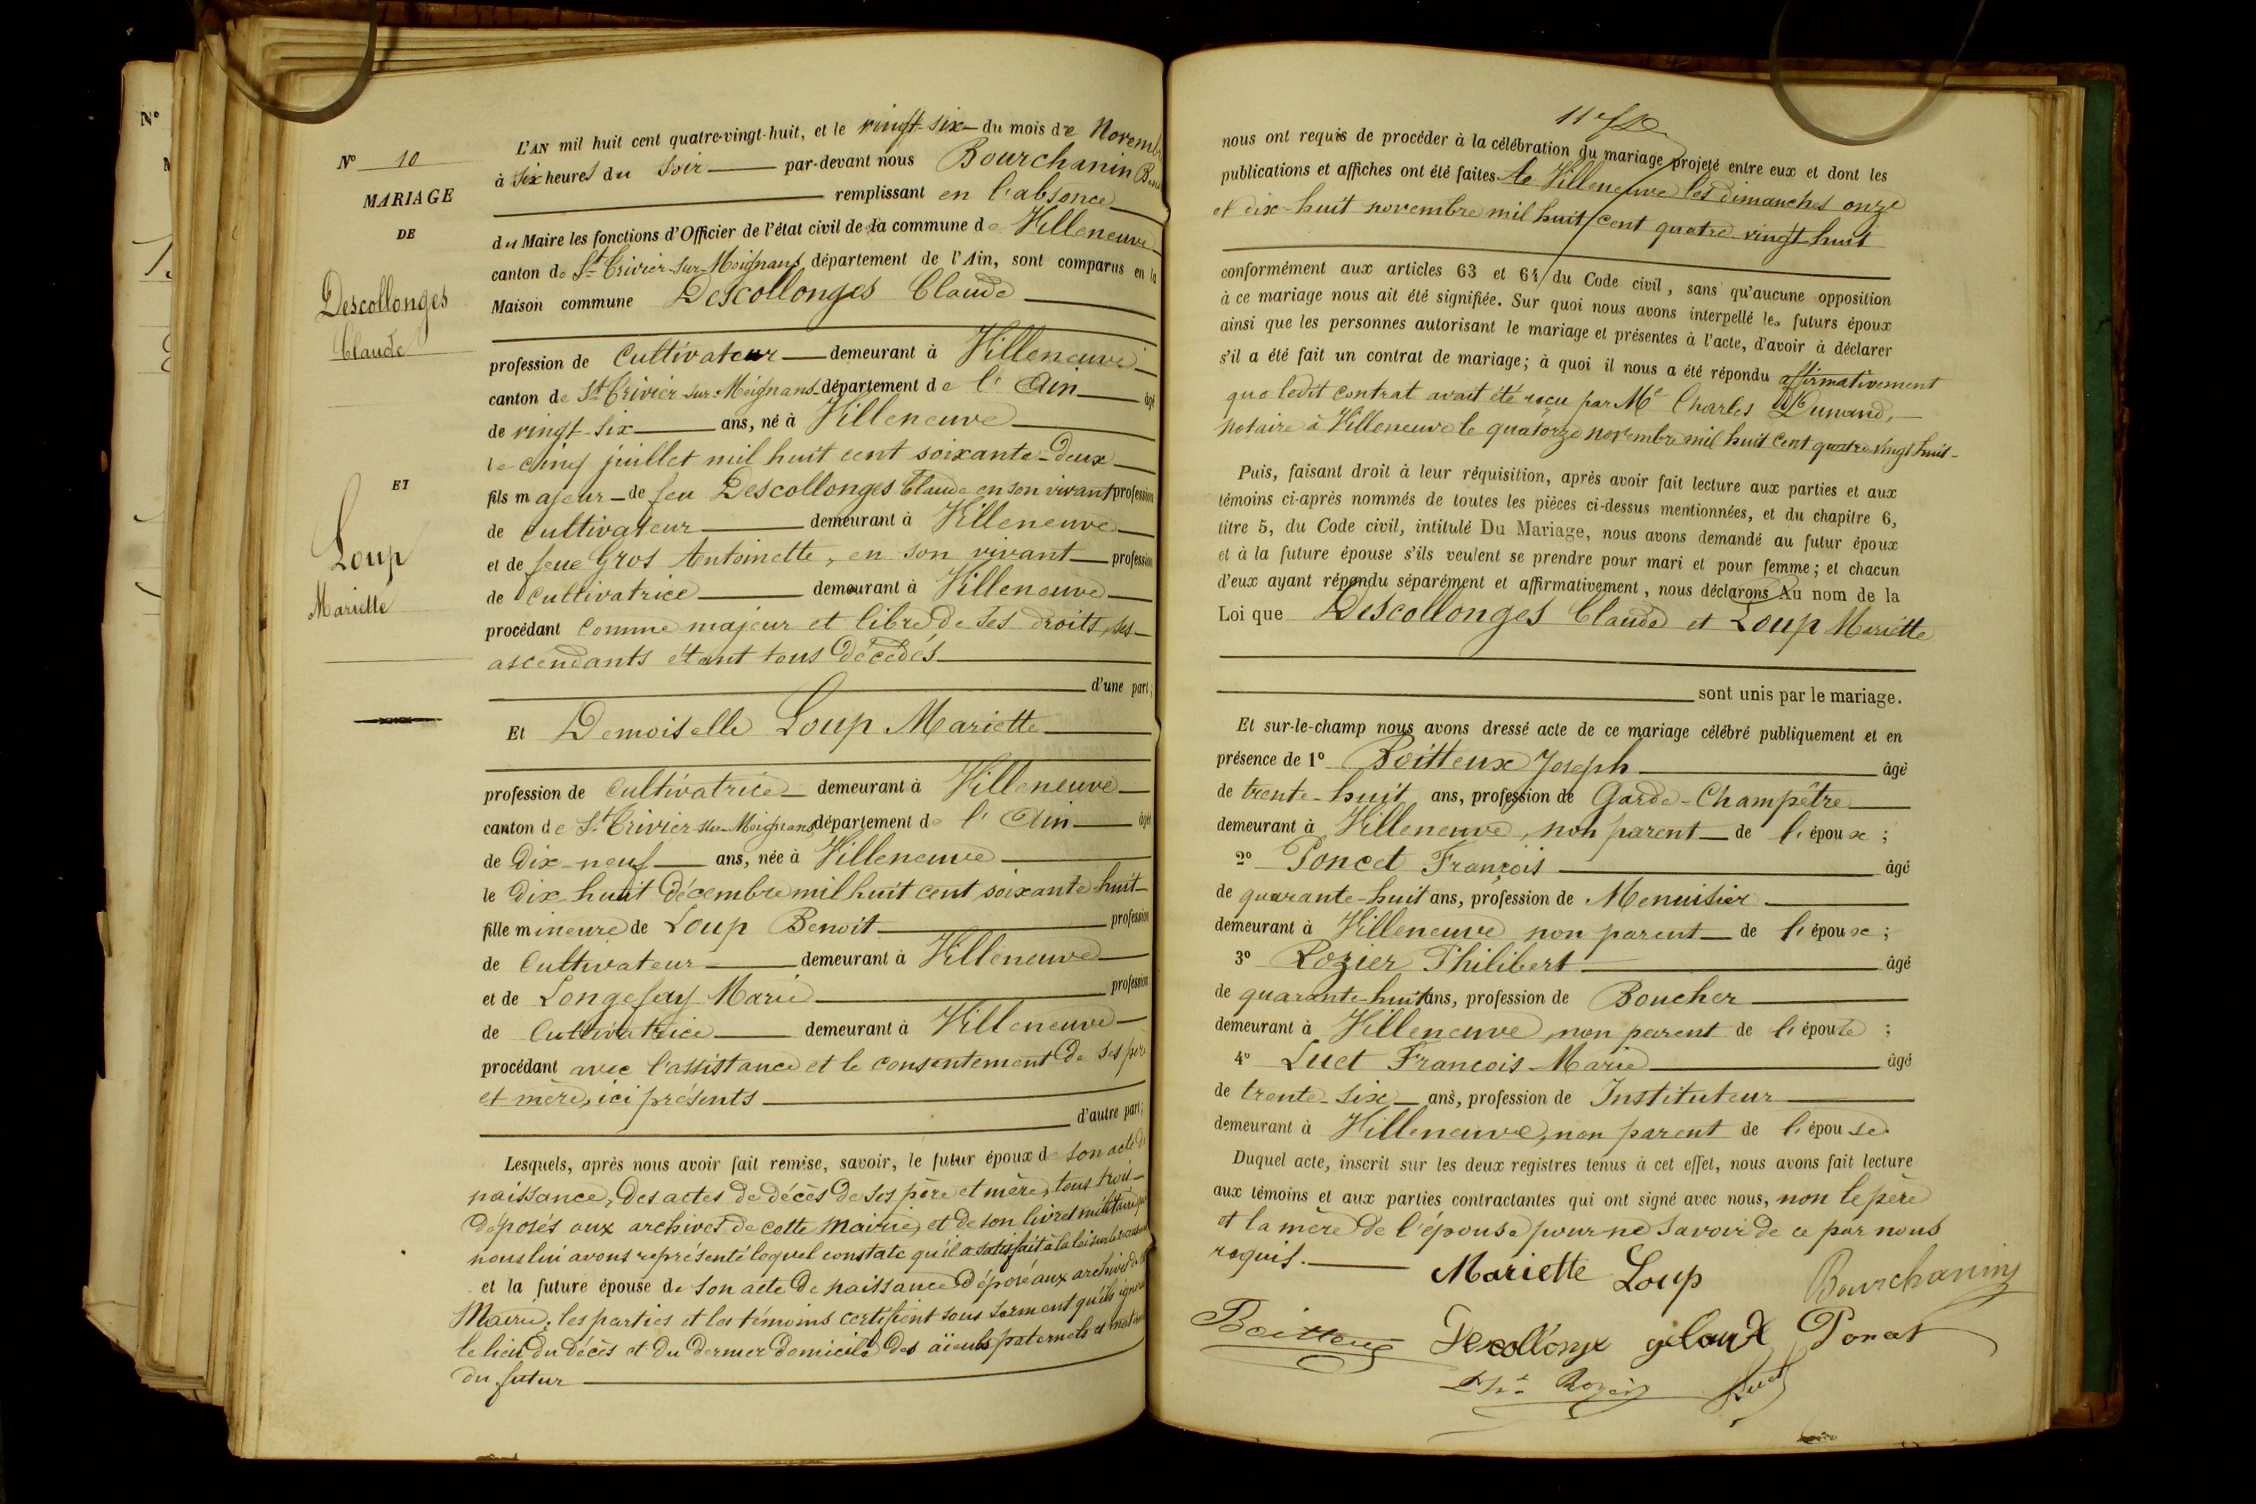 N° 10
MARIAGE
DE
Descollonges
Claude
ET
Loup
Mariette
L'AN mil huit cent quatre-vingt-huit, et le vingt-six du mois de Novembre
à six heures du soir par-devant nous Bourchanin
remplissant en l'absence
du Maire les fonctions d'Officier de l'état civil de la commune de Villeneuve
canton de St Trivier-sur-Moignans département de l'Ain, sont comparus en la
Maison commune Descollonges Claude
profession de Cultivateur demeurant à Villeneuve
canton de St Trivier-sur-Moignans département de l'Ain âgé
de vingt-six ans, né à Villeneuve
le cinq juillet mil huit cent soixante-deux
fils majeur de feu Descollonges Claude en son vivant profession
de cultivateur demeurant à Villeneuve
et de feue Gros Antoinette, en son vivant profession
de cultivatrice demeurant à Villeneuve
procédant comme majeur et libre de ses droits, ses
ascendants étant tous décédés
d'une part;
Et Demoiselle Loup Mariette
profession de Cultivatrice demeurant à Villeneuve
canton de St Trivier-sur-Moignans département de l'Ain âgée
de dix-neuf ans, née à Villeneuve
le dix-huit décembre mil huit cent soixante-huit
fille mineure de Loup Benoit profession
de Cultivateur demeurant à Villeneuve
et de Longefay Marie profession
de Cultivatrice demeurant à Villeneuve
procédant avec l'assistance et le consentement de ses père
et mère, ici présents
d'autre part;
Lesquels, après nous avoir fait remise, savoir, le futur époux de son acte de
naissance, des actes de décès de ses père et mère, tous trois
déposés aux archives de cette Mairie, et de son livret militaire que
nous lui avons représenté lequel constate qu'il a satisfait à la loi sur le recrutement
et la future épouse de son acte de naissance déposé aux archives de la
Mairie; les parties et les témoins certifient sous serment qu'ils ignorent
le lieu du décès et du dernier domicile des aïeuls paternels et maternels
du futur
nous ont requis de procéder à la célébration du mariage projeté entre eux et dont les
publications et affiches ont été faites à Villeneuve les dimanches onze
et dix-huit novembre mil huit cent quatre-vingt-huit
conformément aux articles 63 et 64 du Code civil, sans qu'aucune opposition
à ce mariage nous ait été signifiée. Sur quoi nous avons interpellé les futurs époux
ainsi que les personnes autorisant le mariage et présentes à l'acte, d'avoir à déclarer
s'il a été fait un contrat de mariage; à quoi il nous a été répondu affirmativement
que ledit contrat avait été reçu par Me Charles Dunand,
notaire à Villeneuve le quatorze novembre mil huit cent quatre-vingt-huit
Puis, faisant droit à leur réquisition, après avoir fait lecture aux parties et aux
témoins ci-après nommés de toutes les pièces ci-dessus mentionnées, et du chapitre 6,
titre 5, du Code civil, intitulé Du Mariage, nous avons demandé au futur époux
et à la future épouse s'ils veulent se prendre pour mari et pour femme; et chacun
d'eux ayant répondu séparément et affirmativement, nous déclarons Au nom de la
Loi que Descollonges Claude et Loup Mariette
sont unis par le mariage.
Et sur-le-champ nous avons dressé acte de ce mariage célébré publiquement et en
présence de 1° Boitteux Joseph âgé
de trente-huit ans, profession de Garde-Champêtre
demeurant à Villeneuve, non parent de l'époux;
2° Poncet François âgé
de quarante-huit ans, profession de Menuisier
demeurant à Villeneuve non parent de l'époux;
3° Rozier Philibert âgé
de quarante-huit ans, profession de Boucher
demeurant à Villeneuve, non parent de l'épouse;
4° Luet François-Marie âgé
de trente-six ans, profession de Instituteur
demeurant à Villeneuve, non parent de l'épouse
Duquel acte, inscrit sur les deux registres tenus à cet effet, nous avons fait lecture
aux témoins et aux parties contractantes qui ont signé avec nous, non le père
et la mère de l'épouse pour ne savoir de ce par nous
requis.
Mariette Loup Bourchanin
Boitteux Descollonge Claude Poncet
Rozier Luet